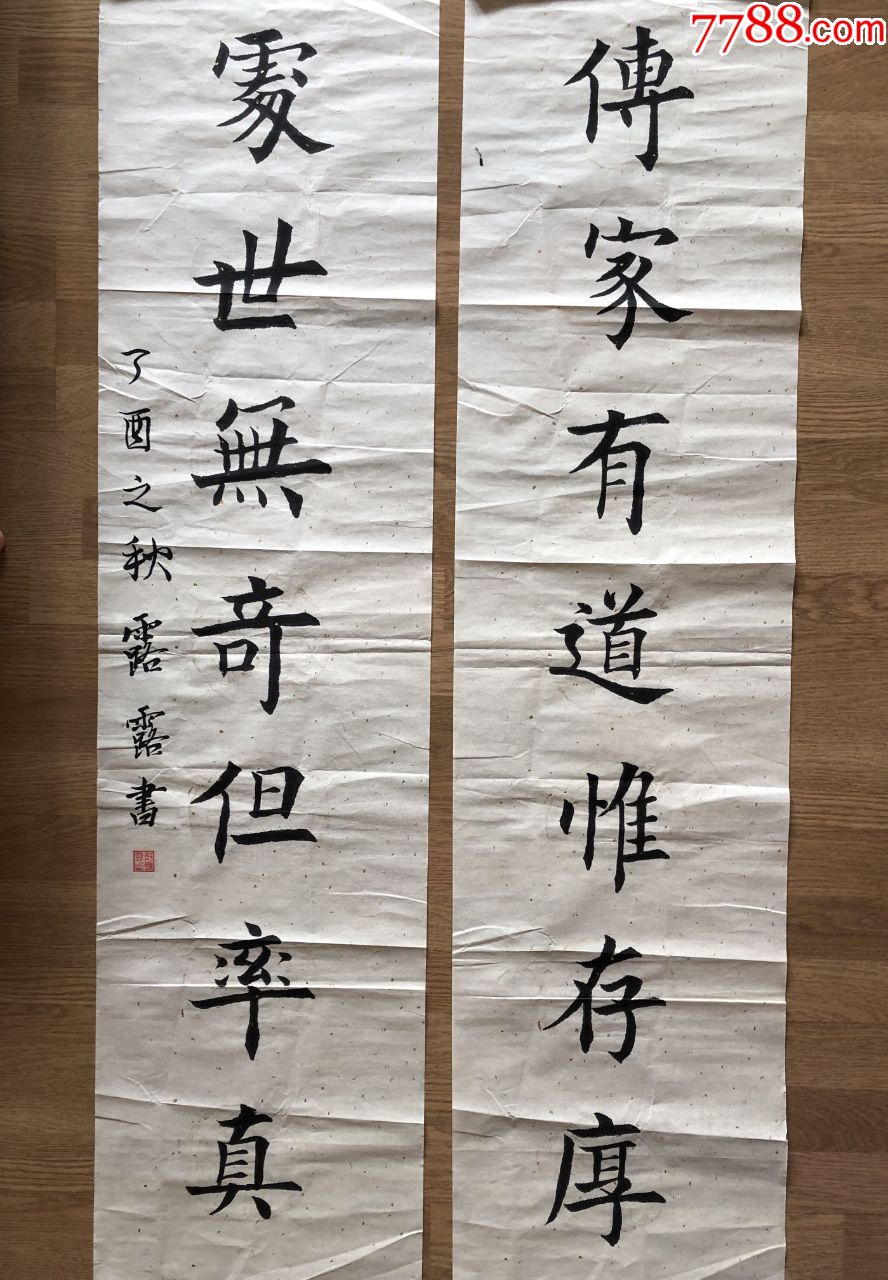 7788.com
傳家有道惟存厚
處世無奇但率真
丁酉之秋露露書